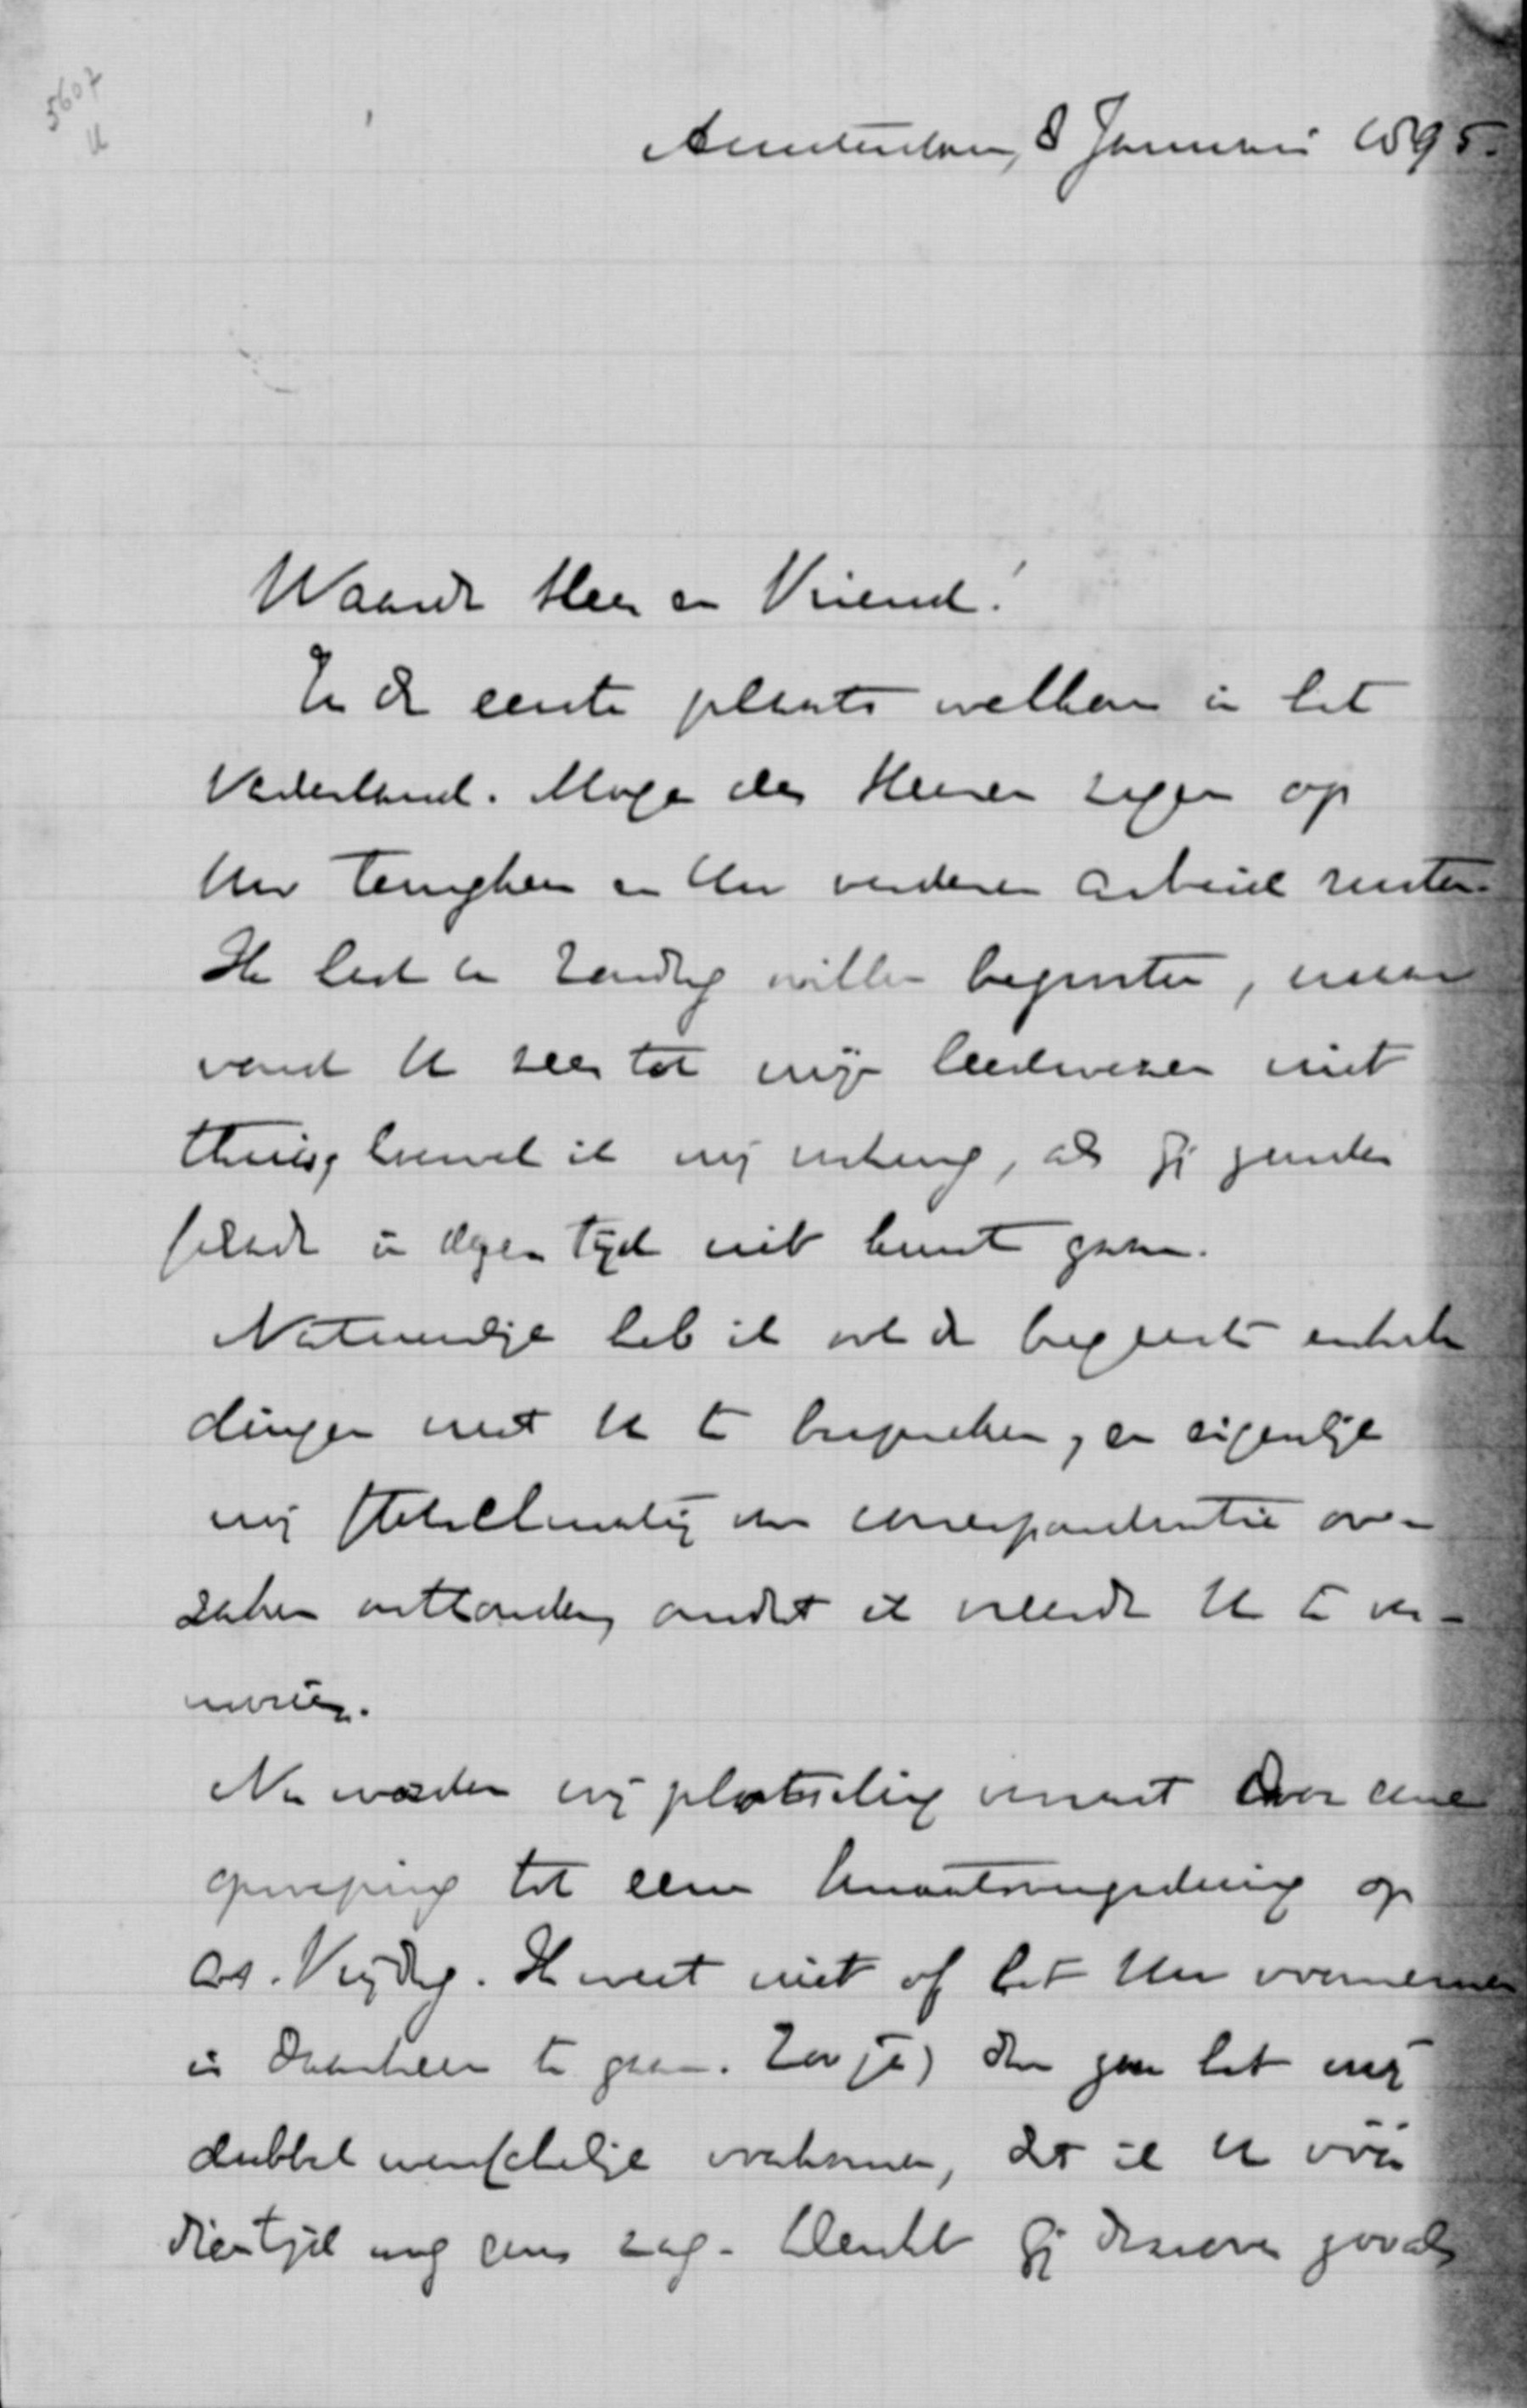 5607
U
Amsterdam, 8 Januari 1895.
Waarde Heer en Vriend!
In de eerste plaats welkom in het
Vaderland. Moge des Heeren zegen op
Uw terugkeer en Uw verderen arbeid rusten.
Ik had U Zondag willen begroeten, maar
vond U zeer tot mijn leedwezen niet
thuis,
in dezen tijd niet kunt gaan.
Natuurlijk heb ik wel de begeerte enkele
dingen met U te bespreken, en eigenlijk
mij stelselmatig van correspondentie over
zaken onthouden, omdat ik meende U te ver-
moeien.
Nu worden wij plotseling verrast door eene
oproeping tot eene op
as. Vrijdag. Ik weet niet of het Uw voornemen
is daarheen te gaan. Zoo ja, dan zou het mij
dubbel wenschelijk voorkomen, dat ik U vóór
dien tijd nog eens zag. Denkt gij daarover